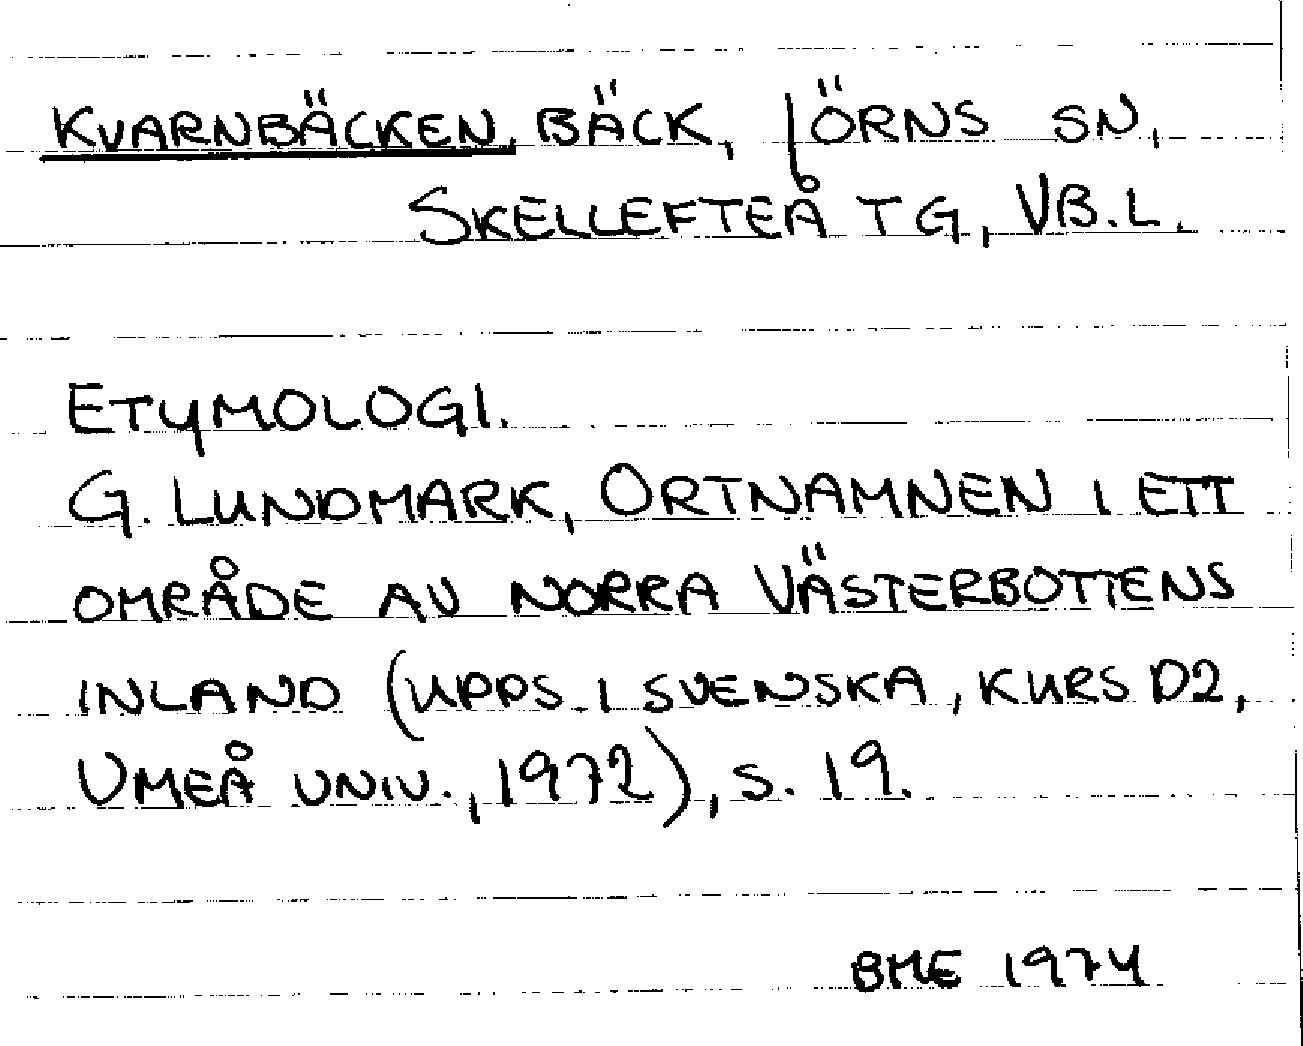 KVARNBÄCKEN, BÄCK, JÖRNS SN,
SKELLEFTEÅ TG, VB.L.
ETYMOLOGI.
G. LUNDMARK, ORTNAMNEN I ETT
OMRÅDE AV NORRA VÄSTERBOTTENS
INLAND (UPPS. I SVENSKA, KURS D2,
UMEÅ UNIV., 1972), S. 19.
BME 1974